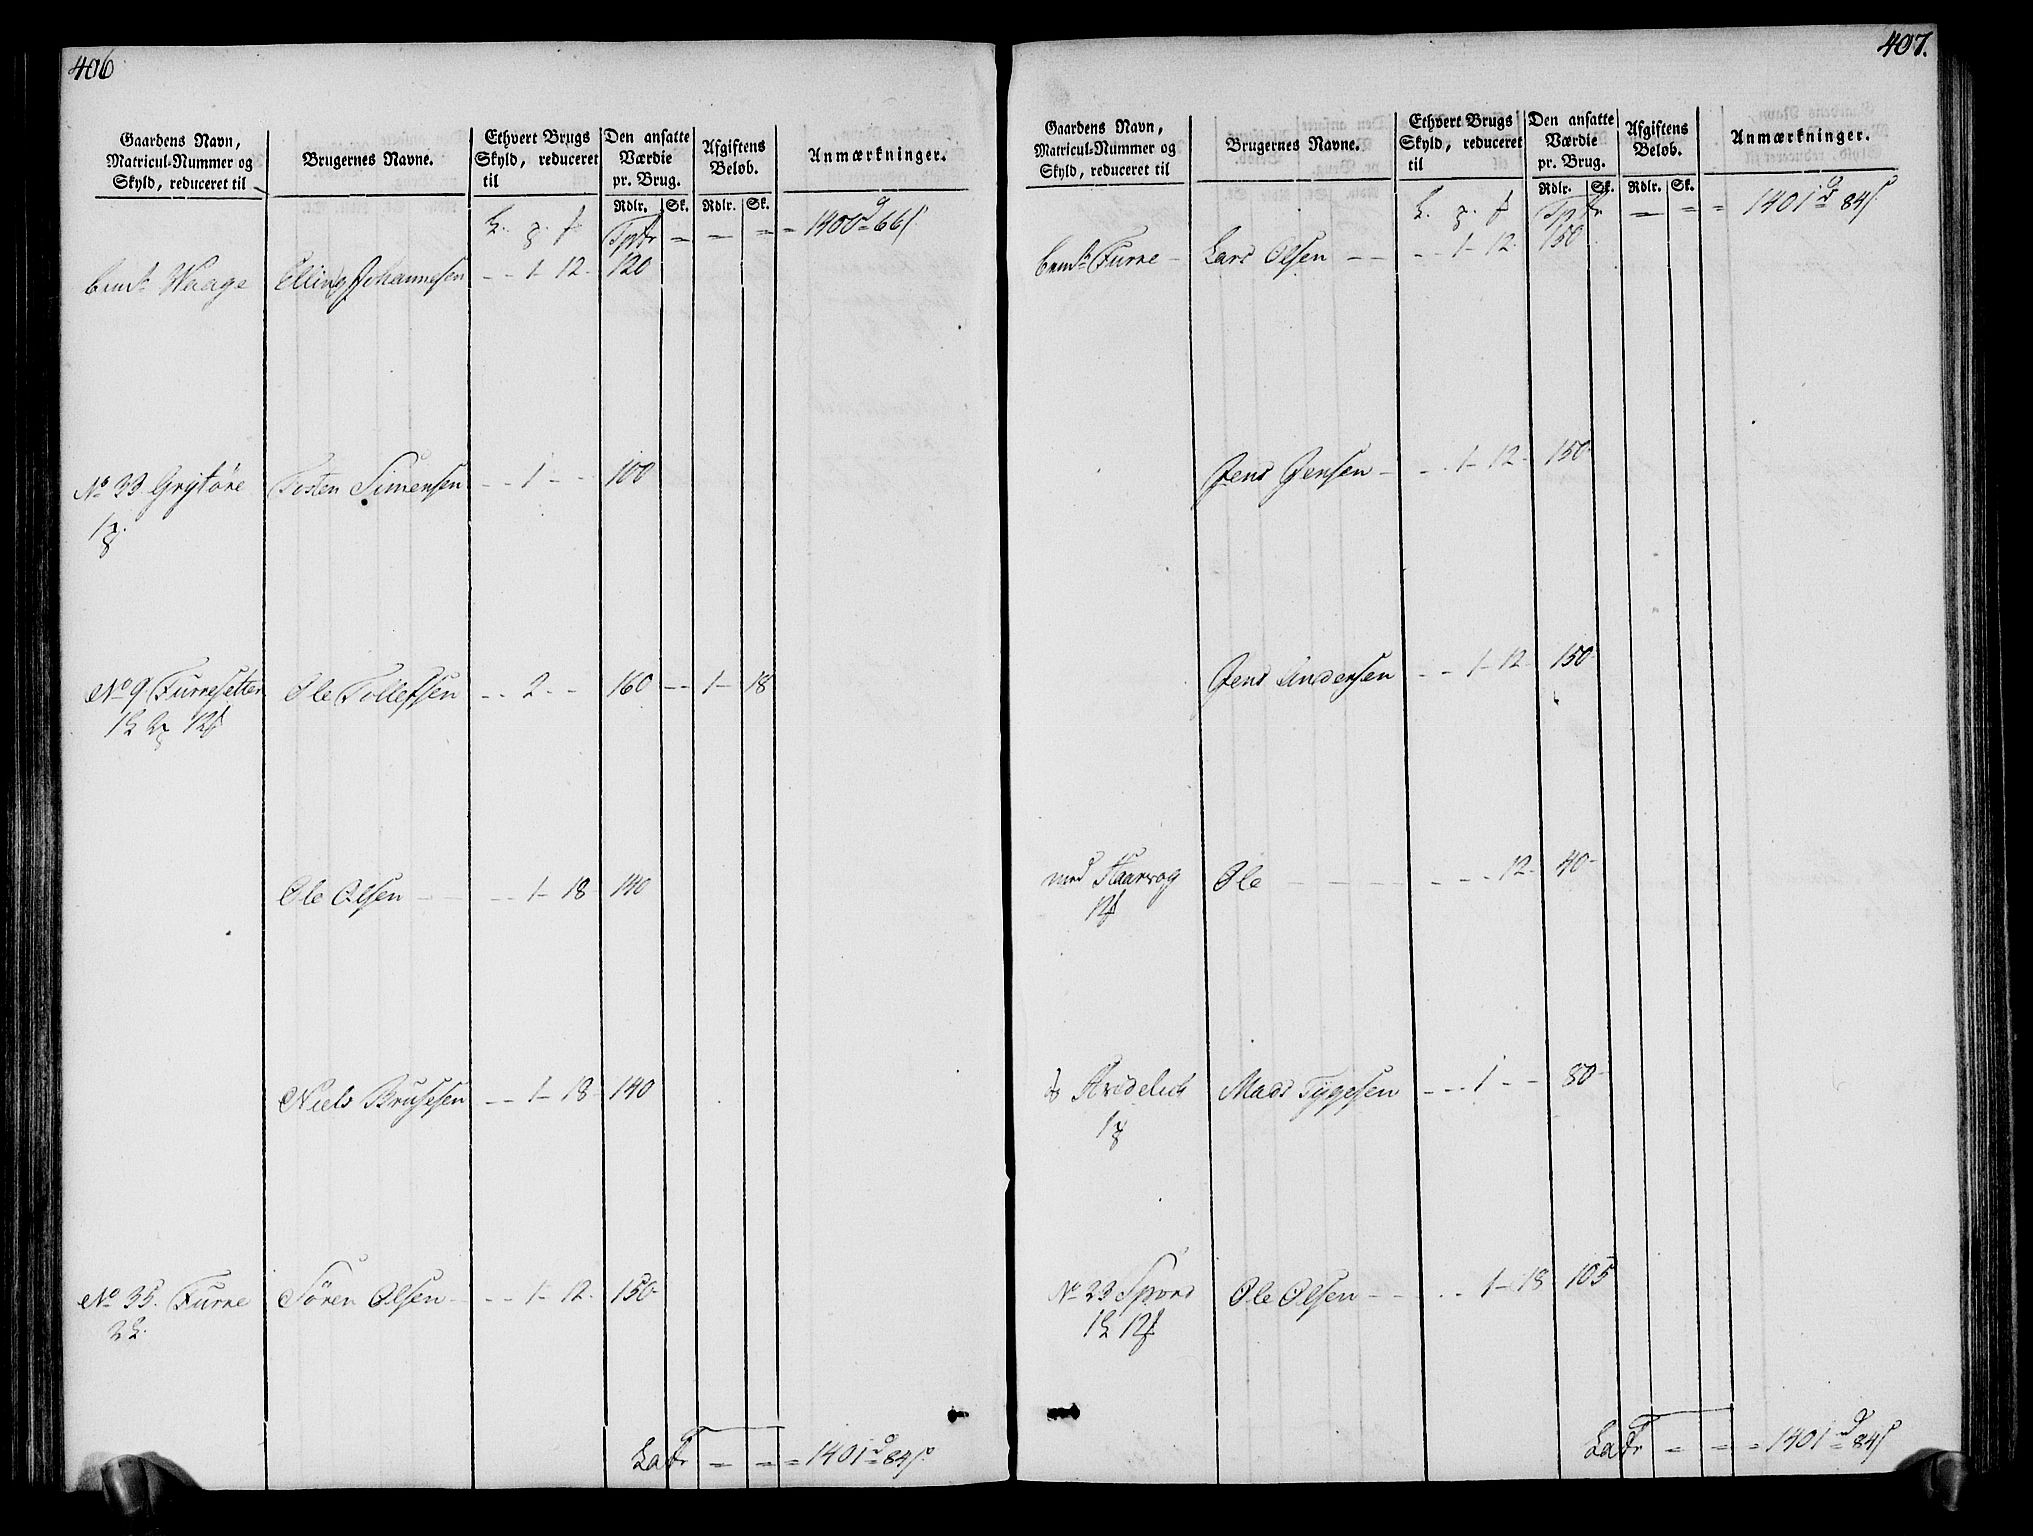 406
Gaardens Navn, Matricul-Nummer og Skyld, reduceret til
Brugernes Navne.
Ethvert Brugs Skyld, reduceret til
Den ansatte Værdie pr. Brug.
Afgiftens Beløb.
Anmærkninger.
Rdlr. Sk. Rdlr. Sk.
Tpsr = = = = 1400 d = 66 s.
bem.te Waage Elling Johannesen - - 1 - 12 - 120
No 33 Grytøre Tosten Simensen - - 1 - - 100
1
No 9 Furresetter Ole Tollefsen - - 2 - - 160 - - 1 - 18
12
Ole Olsen - - - - 1 - 18 140
Niels Brusesen - - 1 - 18 - 140
No 35. Furre Søren Olsen - - - 1 - 12 - 150
Latr = = = 1401 d = 84 s.
407.
Gaardens Navn, Matricul-Nummer og Skyld, reduceret til
Brugernes Navne.
Ethvert Brugs Skyld, reduceret til
Den ansatte Værdie pr. Brug.
Afgiftens Beløb.
Anmærkninger.
Rdlr. Sk. Rdlr. Sk.
Tpsr = = = 1401 d = 84 s.
bem.te Furre - Lars Olsen - - - - 1 - 12 - 150
Jens Jensen - - - 1 - 12 - 150
Jens Andersen - - 1 - 12 - 150
med Ole - - - - - - - 12 - 40
12
Mads Tygesen - - - 1 - - 80
1
No 23 Ole Olsen - - - - 1 - 18 - 105
12
Latr = = = 1401 d = 84 s